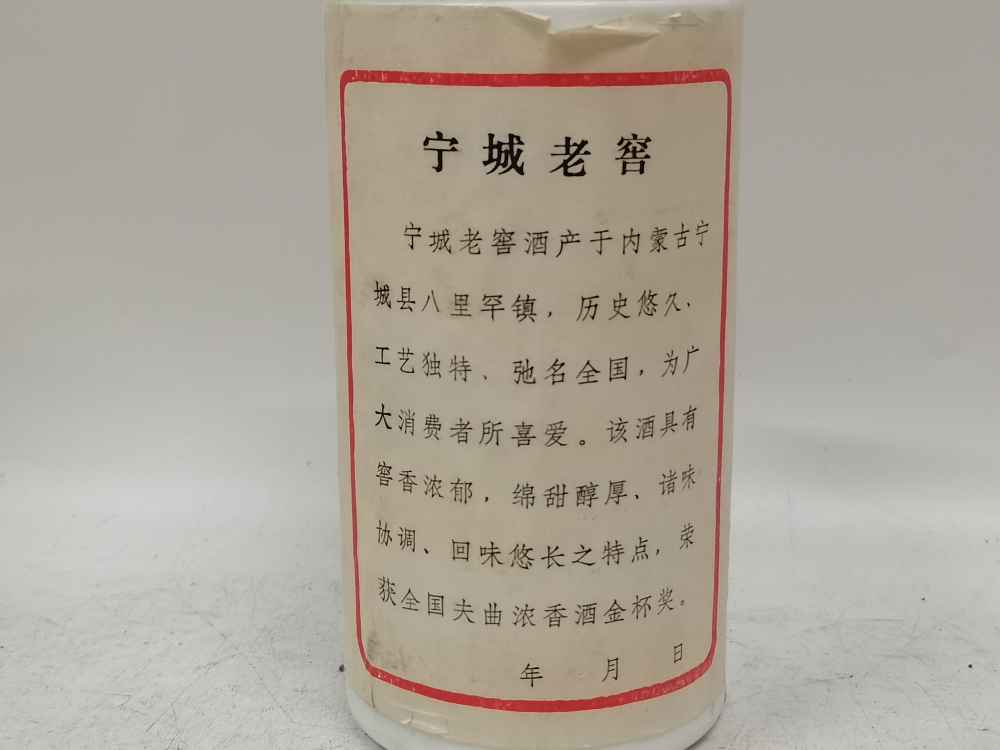 宁城老窖
宁城老窖酒产于内蒙古宁
城县八里罕镇，历史悠久、
工艺独特、弛名全国，为广
大消费者所喜爱。该酒具有
窖香浓郁，绵甜醇厚、诸味
协调、回味悠长之特点，荣
获全国夫曲浓香酒金杯奖。
年 月 日